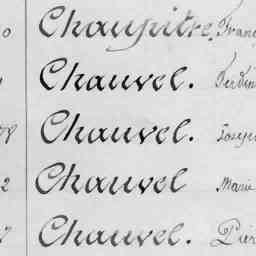 0 Chaupitre. Franç
Chauvel. Ferdin
78 Chauvel. Joseph
2 Chauvel Marie
7 Chauvel. Pier